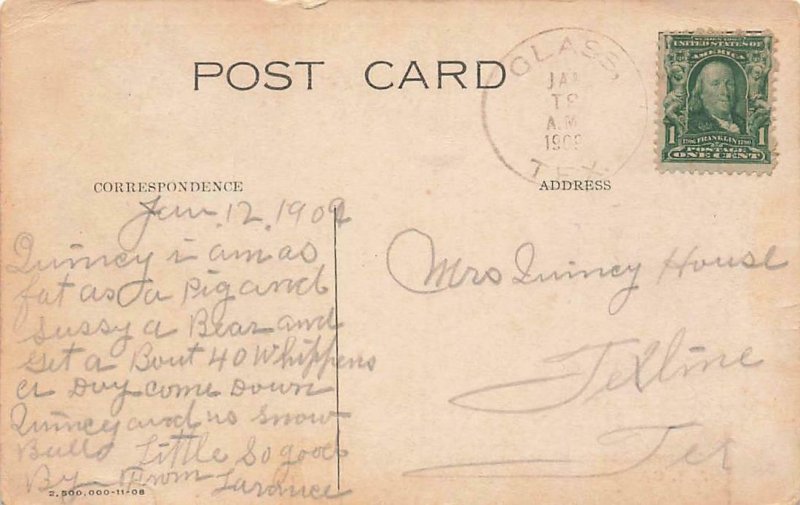 POST CARD
GLASS,
JAN
A.M.
190
TEX.
UNITED STATES OF
AMERICA
1 1
1706 FRANKLIN 1790
POSTAGE
ONE CENT
CORRESPONDENCE
ADDRESS
Jan. 12. 1909
Quincy i am as
fat as a Pig and
Sussy a Bear and
Get a Bout 40 Whippens
a Day come Down
Quincy and us snow
Ball Little So good
By From Larance
Mrs Quincy House
Texline
Tex
2,500,000-11-08